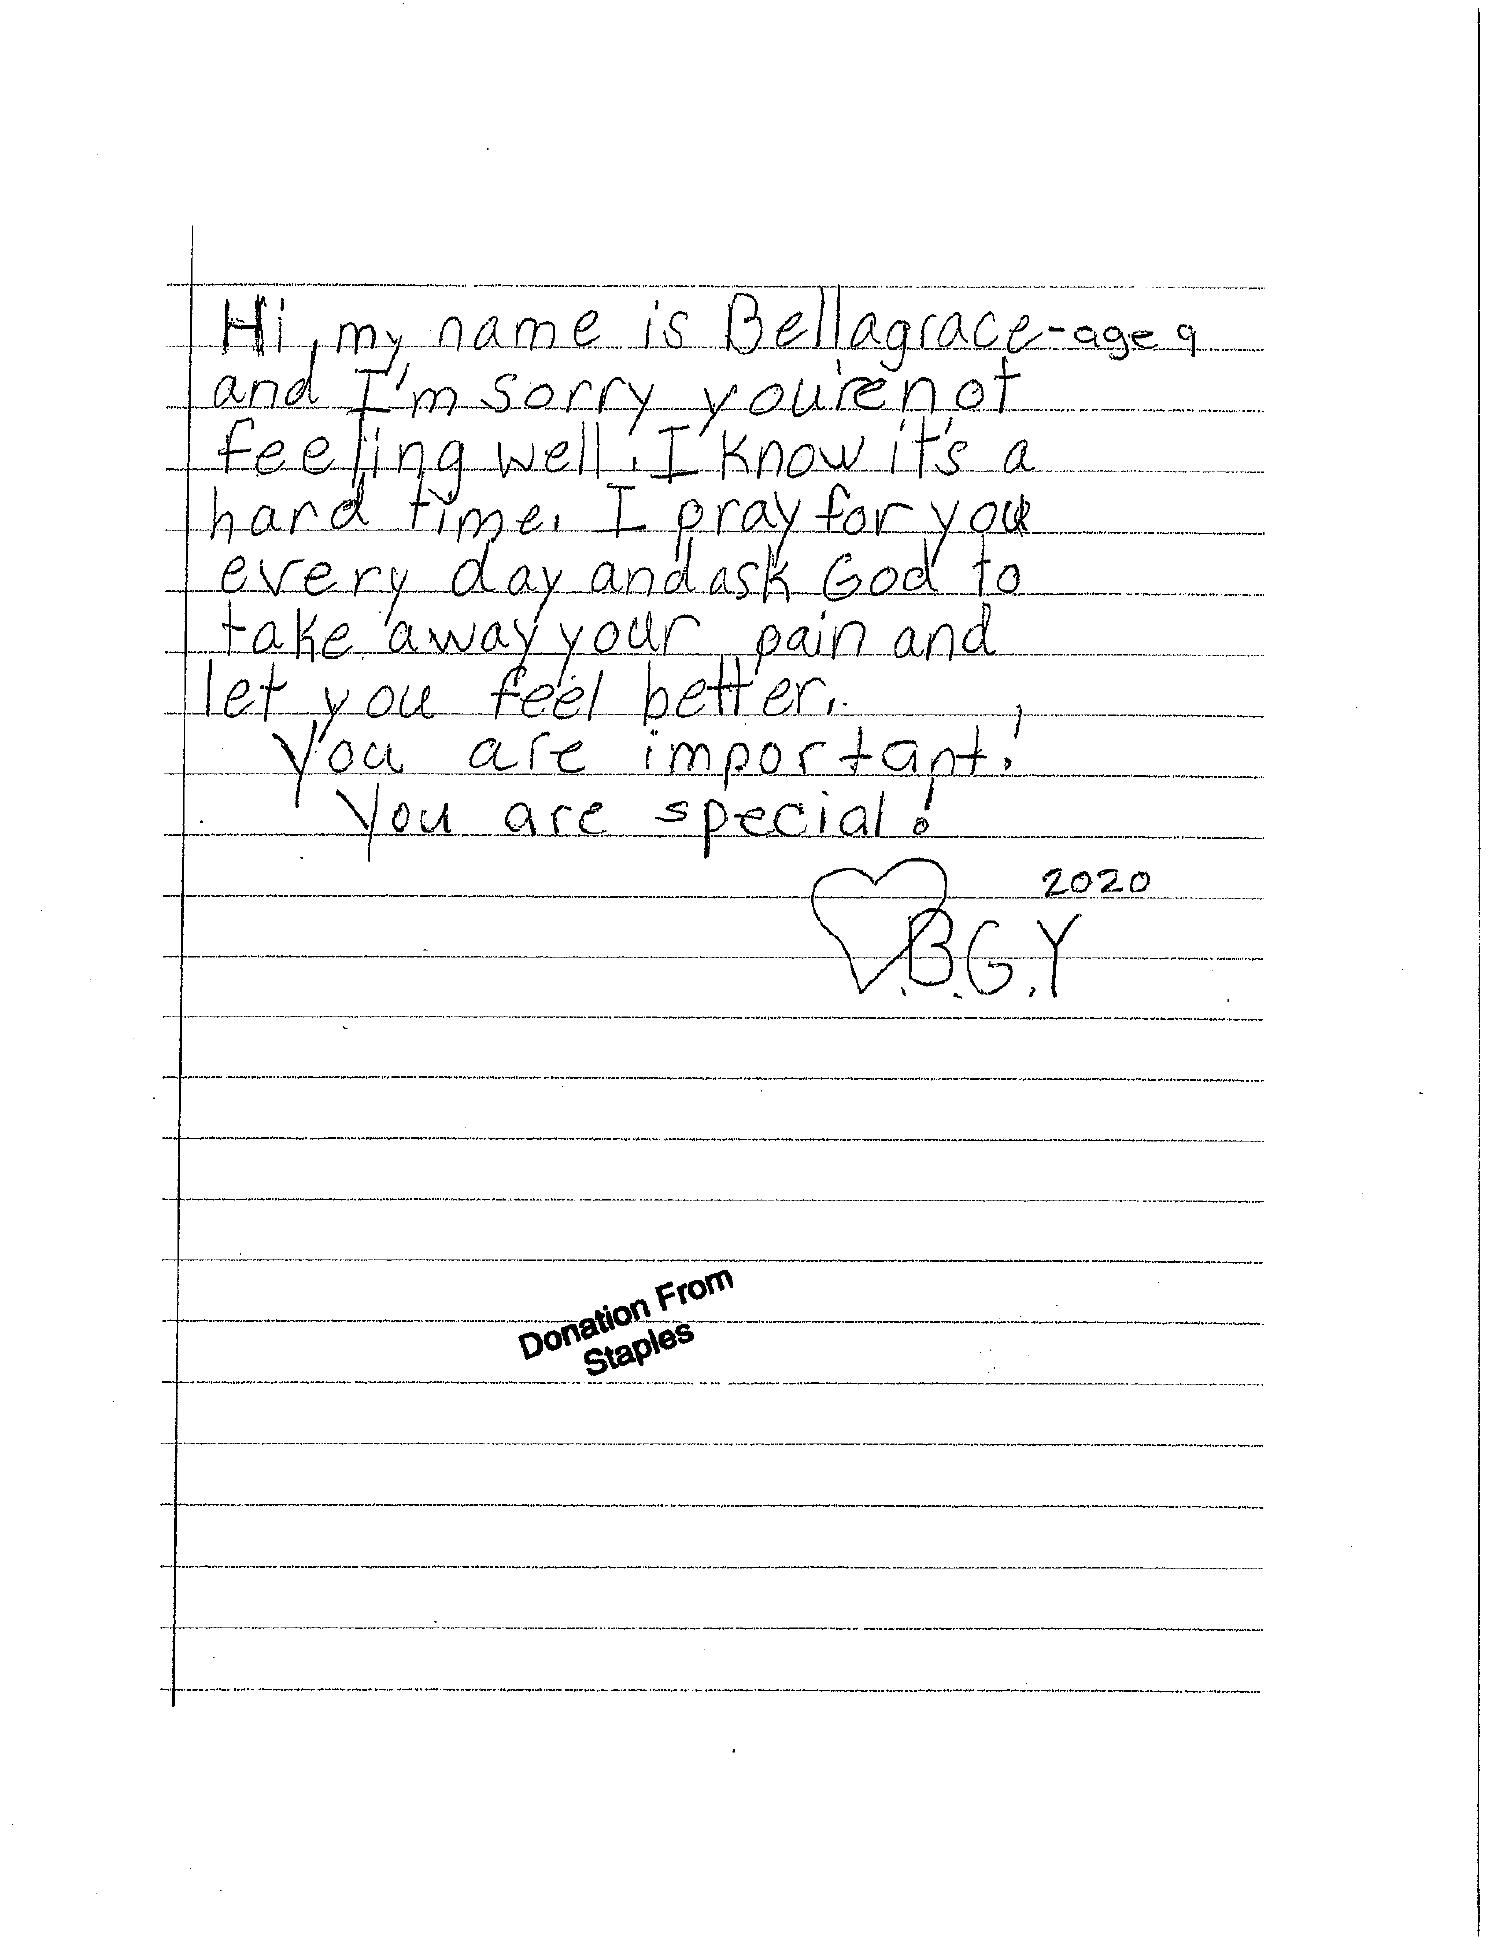 Hi, my name is Bellagrace-age 9
and I'm sorry you're not
feeling well. I know it's a
hard time. I pray for you
every day and ask God to
take away your pain and
let you feel better.
You are important!
You are special!
2020
B.G.Y
Donation From
Staples